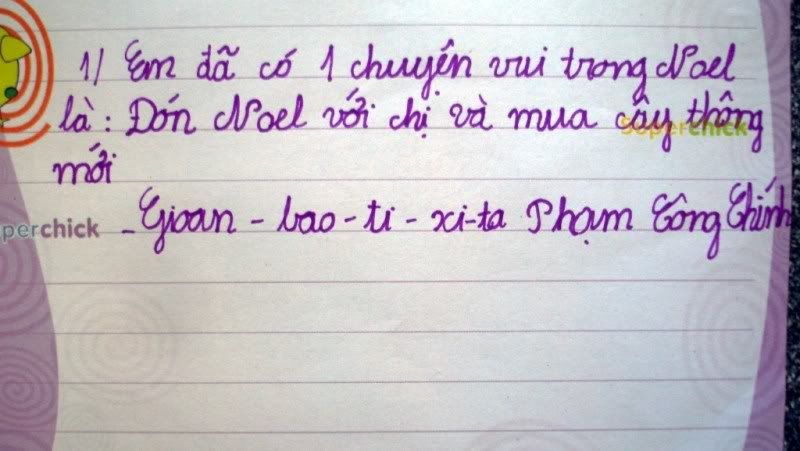 1/ Em đã có 1 chuyện vui trong Noel
là: Đón Noel với chị và mua cây thông
Superchick
mới
perchick
- Gioan - bao - ti - xi-ta Phạm Công Chính